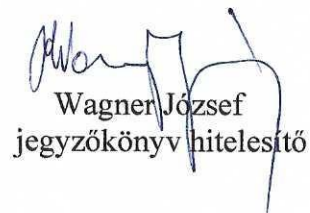 Wagner József
jegyzőkönyv hitelesítő